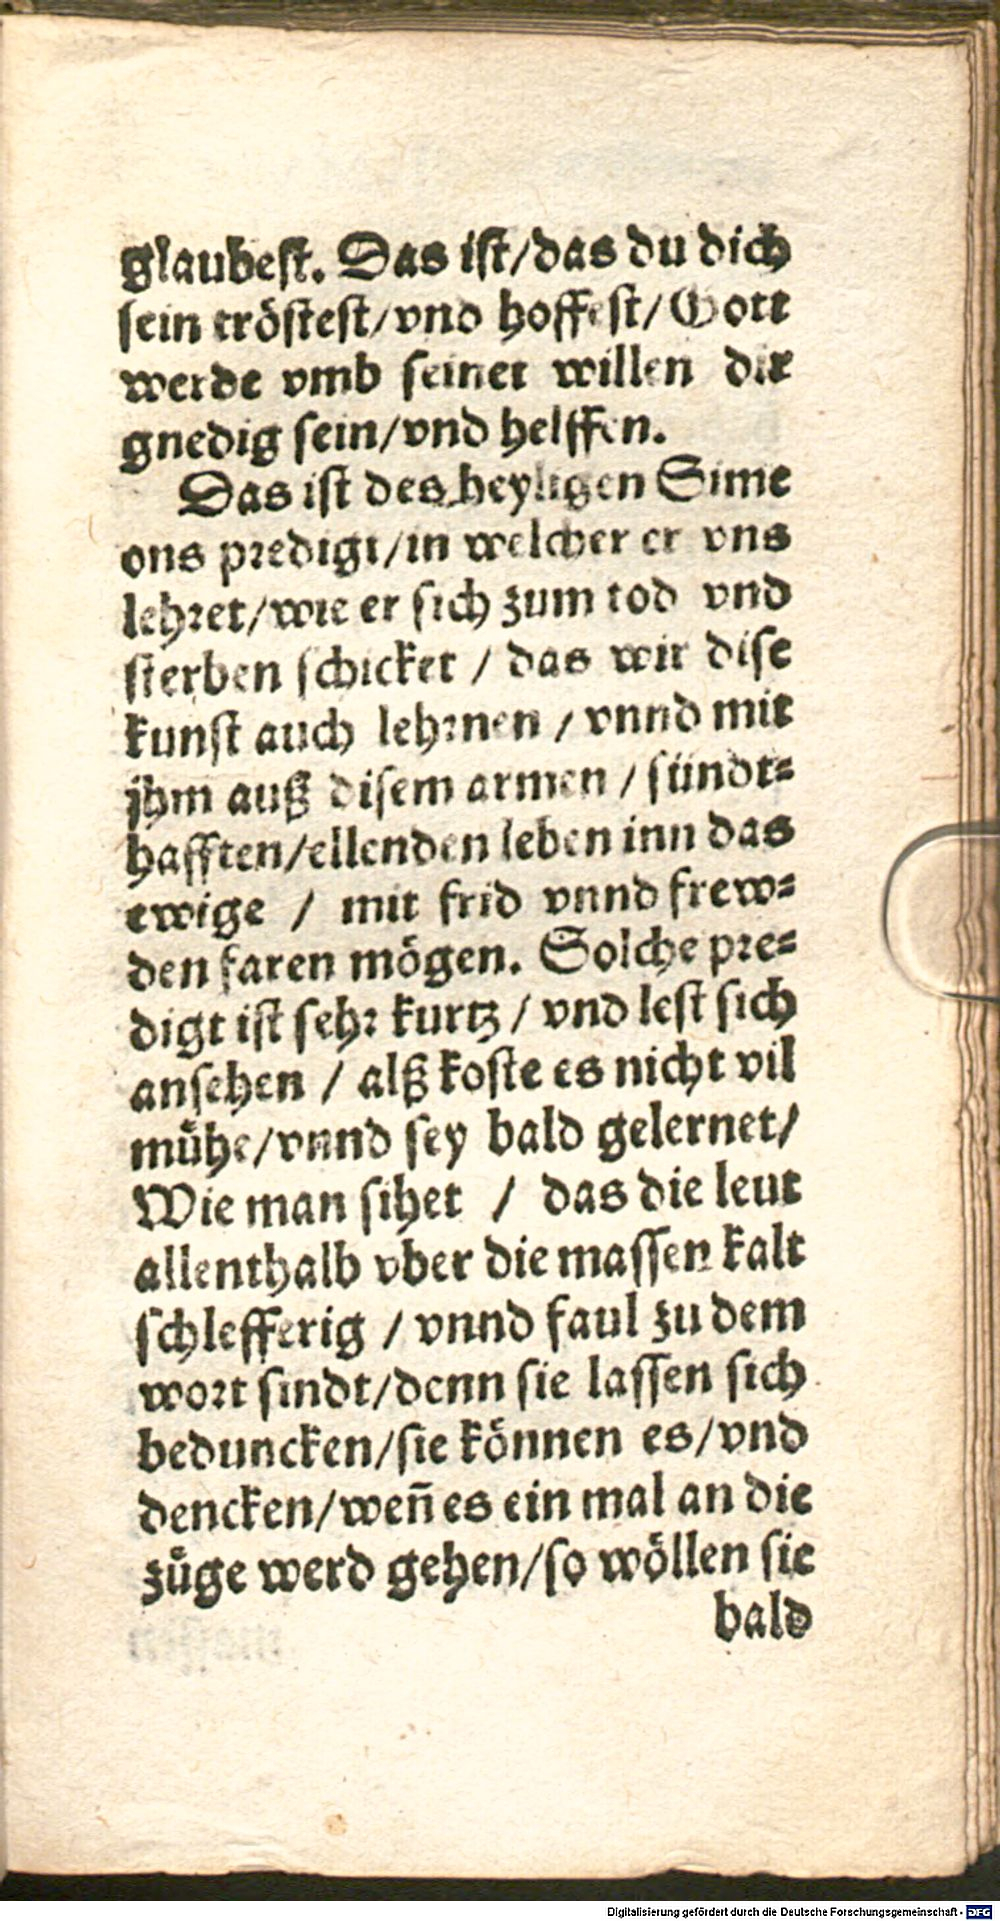 glaubest. Das ist/das du dich
sein tröstest/vnd hoffest/Gott
werde vmb seinet willen dir
gnedig sein/vnd helffen.
Das ist des heyligen Sime
ons predigt/in welcher er vns
lehret/wie er sich zum tod vnd
sterben schicket / das wir dise
kunst auch lehrnen / vnnd mit
jhm auß disem armen / sündt⸗
hafften/ellenden leben inn das
ewige / mit frid vnnd frew⸗
den faren mögen. Solche pre⸗
digt ist sehr kurtz / vnd lest sich
ansehen / alß koste es nicht vil
mühe/vnnd sey bald gelernet/
Wie man sihet / das die leut
allenthalb vber die massen kalt
schlefferig / vnnd faul zu dem
wort sindt/denn sie lassen sich
beduncken/sie können es/vnd
dencken/weñ es ein mal an die
züge werd gehen/so wöllen sie
bald
Digitalisierung gefördert durch die Deutsche Forschungsgemeinschaft - DFG